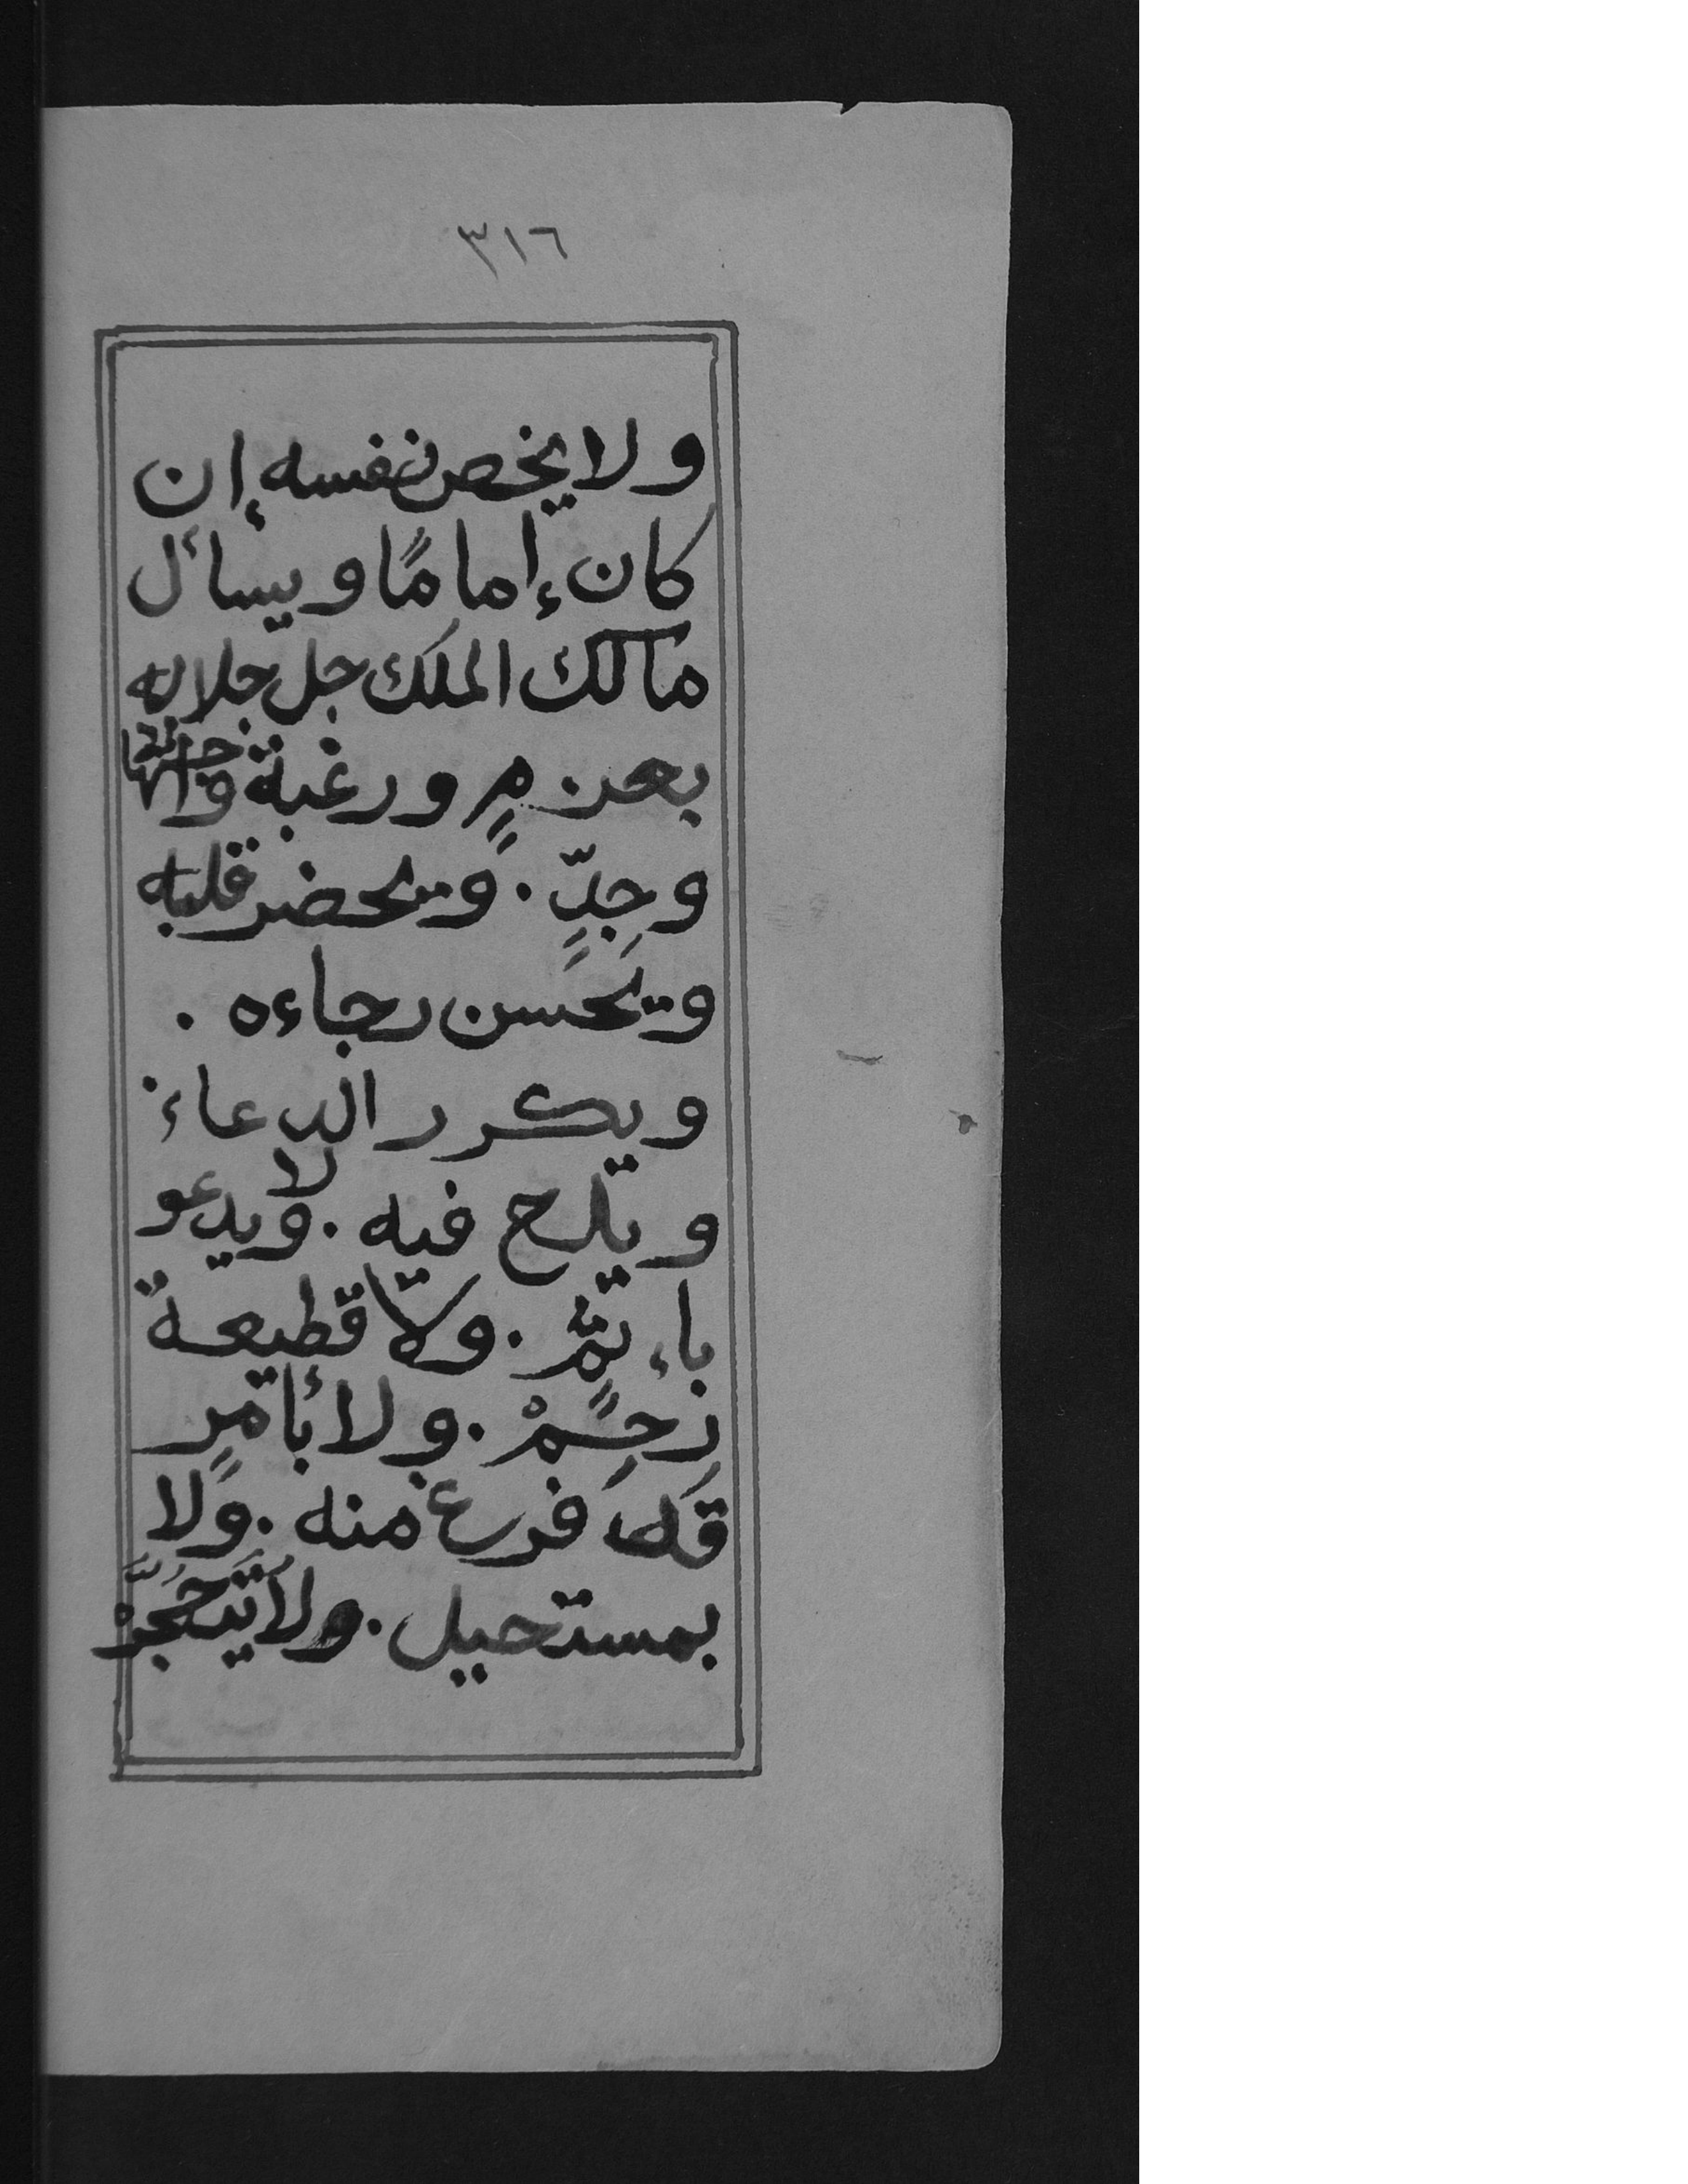 ٣١٦
ولا يخص نفسه إن
كان إمامًا ويسأل
مالك الملك جل جلاله
بعزمٍ ورغبة
وجِدٍّ . ويحضر قلبه
ويحسن رجاءه .
ويكرر الدعاء
ويلح فيه . ولا يدعو
بإثمٍ . ولا قطيعة
رحِمْ . ولا بأمرٍ
قد فرغ منه . ولا
بمستحيل . ولا يتحجَّرْ